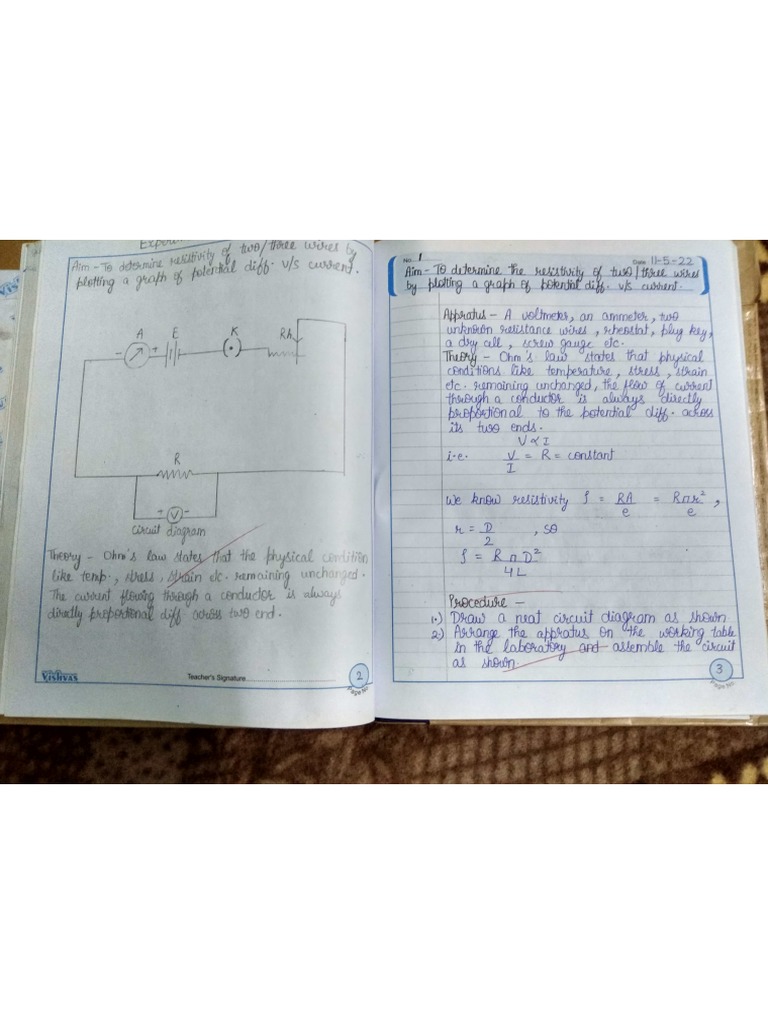 Aim - To determine resistivity of two/three wires by
plotting a graph of potential diff. v/s current.
A E K Rh
- +
R
+ V -
circuit diagram
Theory - Ohm's law states that the physical condition
like temp., stress, strain etc. remaining unchanged.
The current flowing through a conductor is always
directly proportional diff across two end.
VISHVAS
Teacher's Signature
2
Page No.
No. 1
Date 11-5-22
Aim - To determine the resistivity of two/three wires
by plotting a graph of potential diff. v/s current.
Appratus - A voltmeter, an ammeter, two
unknown resistance wires, rheostat, plug key,
a dry cell, screw gauge etc.
Theory - Ohm's law states that physical
conditions like temperature, stress, strain
etc. remaining unchanged, the flow of current
through a conductor is always directly
proportional to the potential diff. across
its two ends.
V ∝ I
i.e. V/I = R = constant
We know resistivity ρ = RA/e = Rπr²/e ,
r = D/2 , so
ρ = R π D²/4L
Procedure -
1.) Draw a neat circuit diagram as shown
2.) Arrange the appratus on the working table
in the laboratory and assemble the circuit
as shown.
3
Page No.